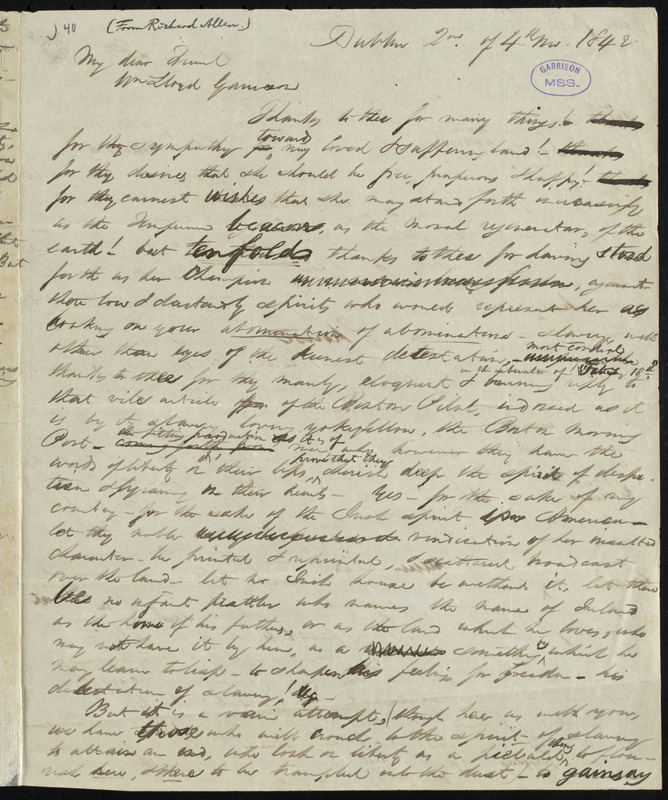 40
(From Richard Allen)
Dublin 2nd of 4th Mo. 1842
GARRISON
MSS.
My dear Friend
Wm Lloyd Garrison
Thanks to thee for many things! thanks
for thy sympathy towards my loved & suffering land! thanks
for thy desires that she should be free, prosperous & happy! thanks
for thy earnest wishes that she may stand forth increasingly
as the beacon, as the moral regenerator, of the
earth! but tenfold thanks to thee for having stood
forth as her Champion against
those low & dastardly spirits who would represent her as
looking on your abomination of abominations slavery with
other than eyes of the deepest detestation, most cordial
in the Liberator of 18th
thanks to thee for thy manly eloquent & burning reply to
that vile article of the Boston Pilot, indorsed as it
is by its slavery loving yokefellow, the Boston Morning
Post the filthy production as it is of
men who however they have the
words of liberty on their lips prove that they cherish deep the spirit of despo-
tism & tyranny in their hearts Yes for the sake of my
country for the sake of the Irish spirit in America
let thy noble vindication of her insulted
character be printed & reprinted, & scattered broadcast
over the land let no Irish house be without it, let there
be no infant prattler who names the name of Ireland
as the home of his fathers, or as the land which he loves, who
may not have it by him, as a something which he
may learn to lisp to sharpen his feelings for freedom his
detestation of slavery!
But it is a vain attempt, (though here as with you
we have those who will crouch to the spirit of slavery
to attain an end, who look on liberty as a thing to flou-
rish here, & there to be trampled into the dust to gainsay